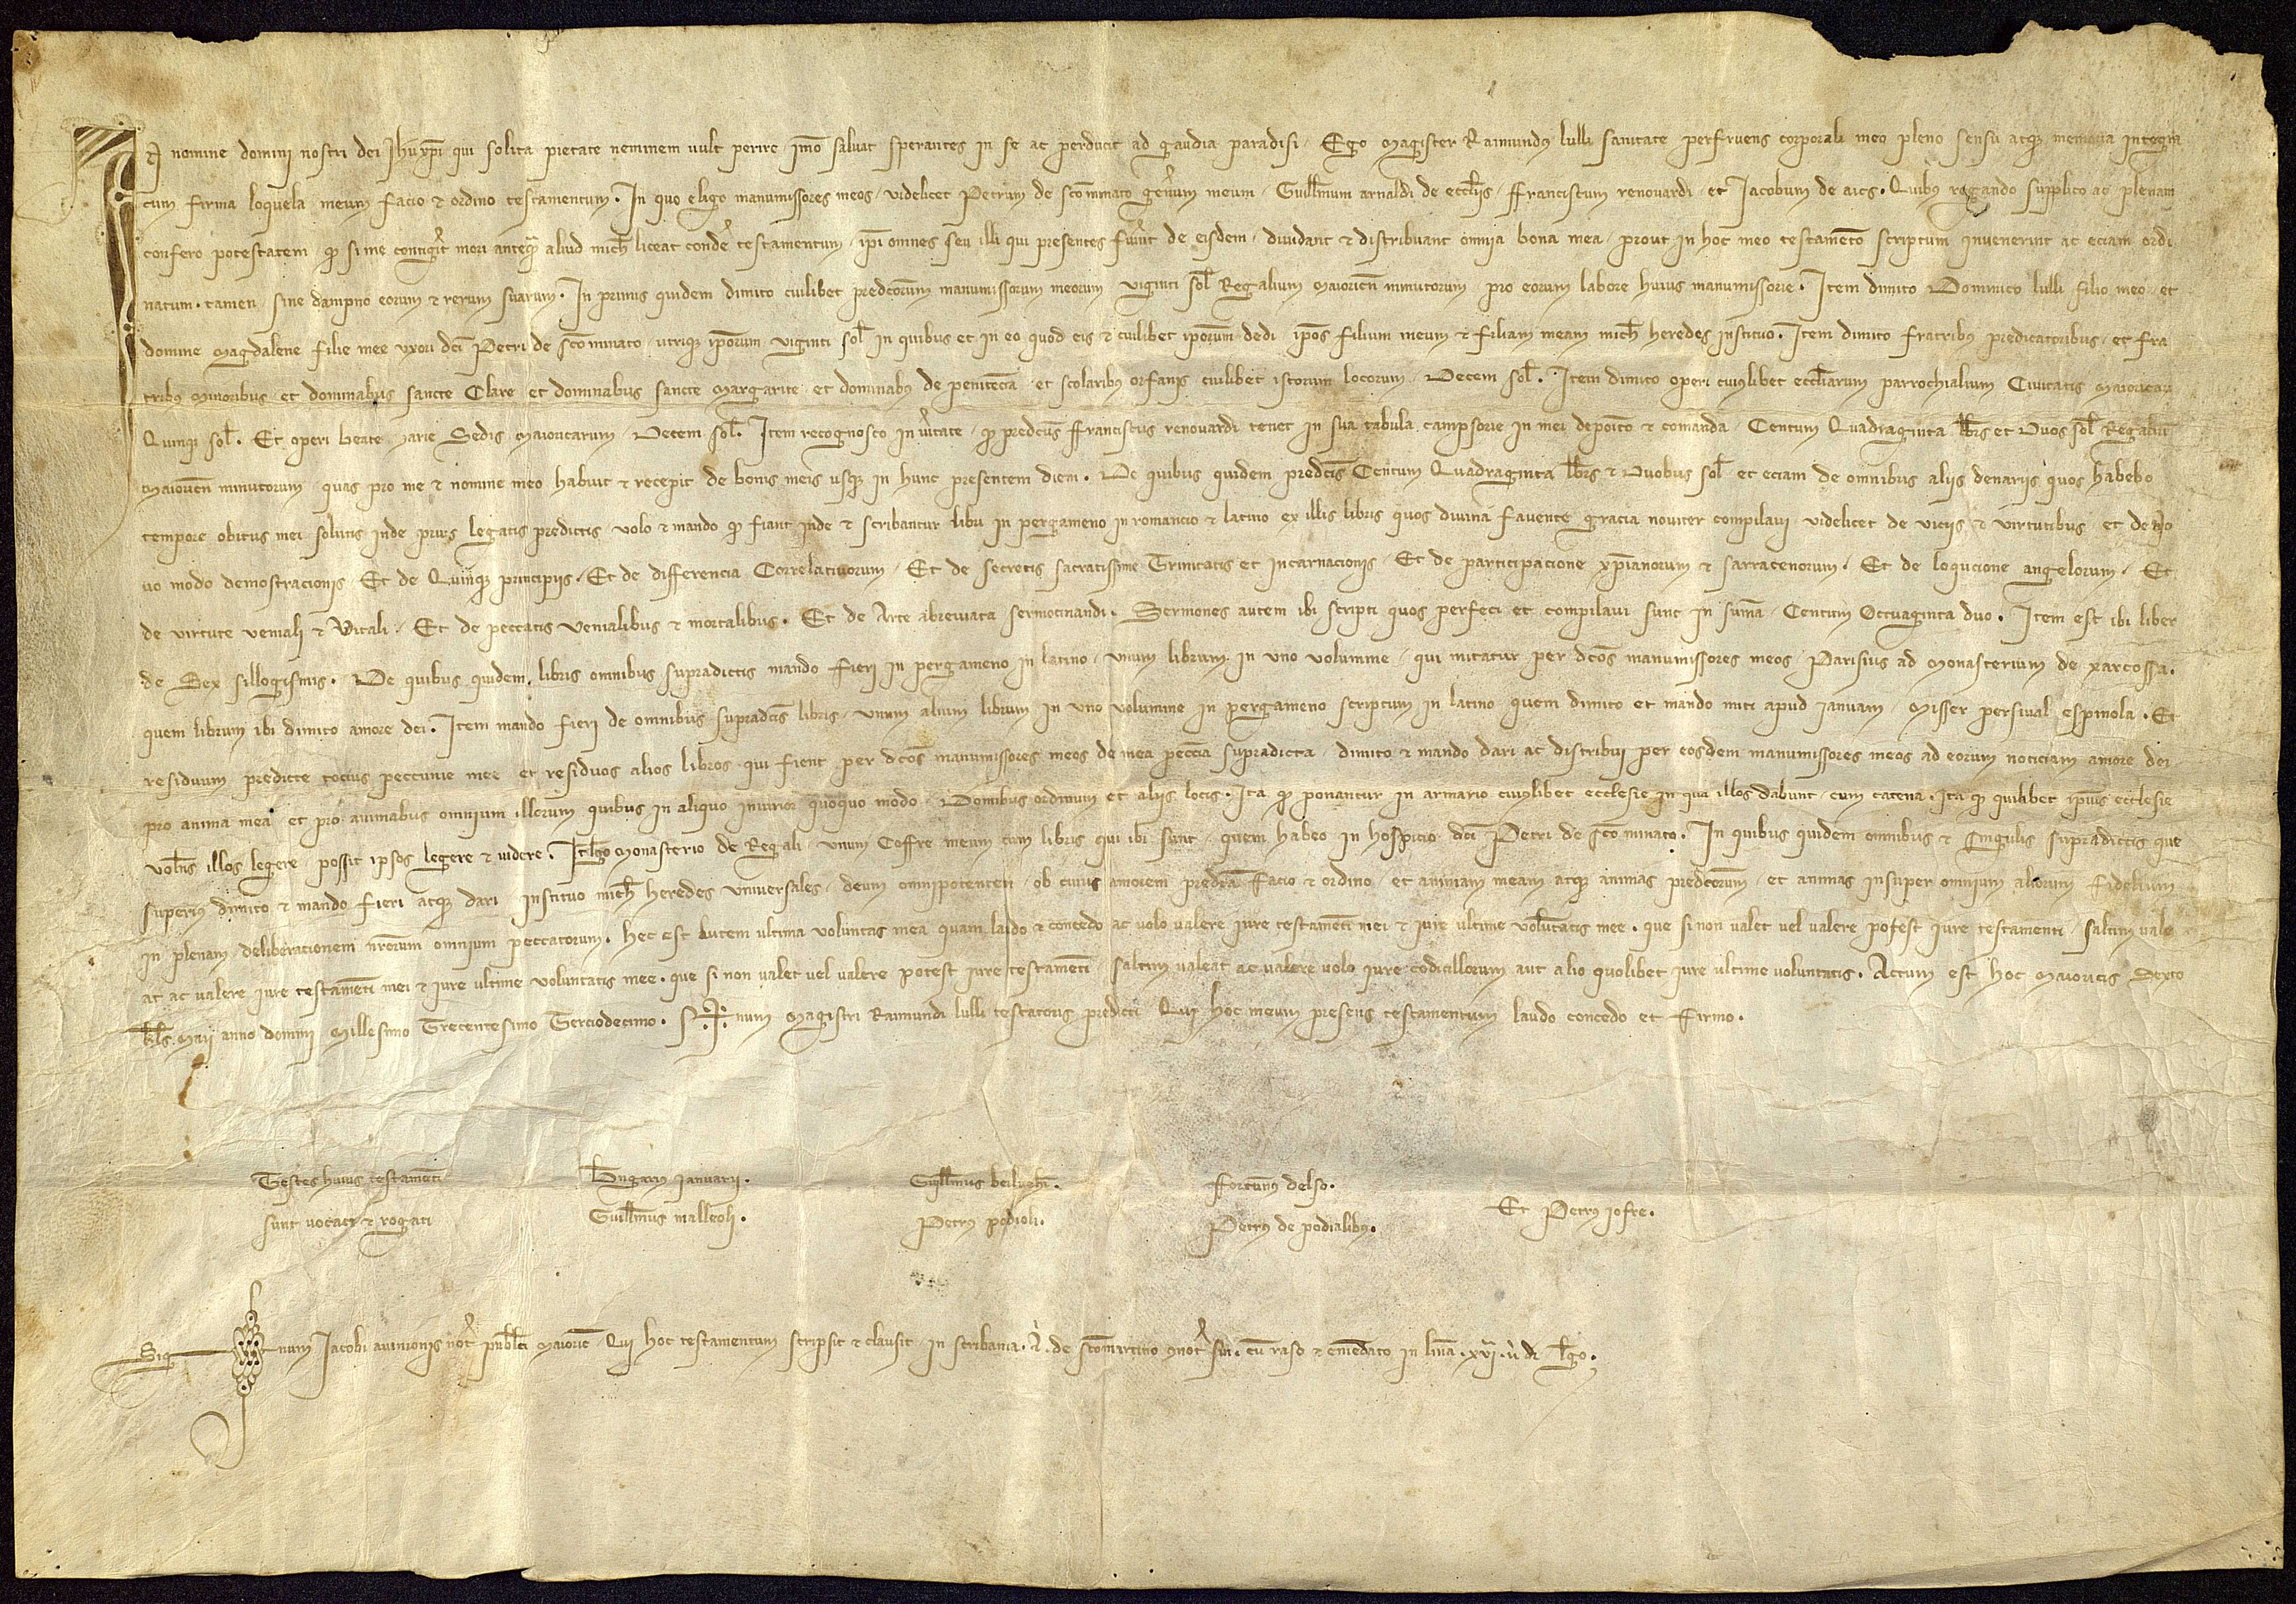 In nomine domini nostri dei Jhu xpi qui solita pietate neminem vult perire imo salvat sperantes in se ac perducit ad gaudia paradisi. Ego magister Raimundus lulli sanitate perfruens corporali meo pleno sensu atqz memoria integra
cum firma loquela meum facio et ordino testamentum. In quo eligo manumissores meos, videlicet Petrum de scominato generum meum, Guillmum arnaldi de eccliis, ffranciscum renovardi et Jacobum de aics. Quibus rogando supplico ac plenam
confero potestatem qd si me contigerit mori anteqz aliud mich liceat condere testamentum, ipi omnes seu illi qui presentes fuerint de eisdem, dividant et distribuant omnia bona mea, prout in hoc meo testamento scriptum invenerint ac eciam ordi
natum, tamen sine dampno eorum et rerum suarum. In primis quidem dimito cuilibet predcorum manumissorum meorum viginti sol Regalium maioricn minutorum pro eorum labore huius manumissorie. Item dimito Dominico lulli filio meo et
domine Magdalene filie mee uxori dci Petri de scominato utriqz iporum viginti sol in quibus et in eo quod eis et cuilibet iporum dedi ipos filium meum et filiam meam mich heredes instituo. Item dimito fratribus predicatoribus, et fra
tribus minoribus et dominabus sancte Clare et dominabus sancte Margarite et dominabus de penitecia et scolaribus orfanis cuilibet istorum locorum Decem sol. Item dimito operi cuiuslibet eccliarum parrochialium Civitatis maioricarum
Quinqz sol. Et operi beate marie Sedis maioricarum Decem sol. Item recognosco in veritate qd predcus ffranciscus renovardi tenet in sua tabula campsorie in mei depoito et comanda Centum Quadraginta lbrs et Duos sol Regalium
maioricn minutorum, quas pro me et nomine meo habuit et recepit de bonis meis usqz in hunc presentem diem. De quibus quidem predcis Centum Quadraginta lbris et Duobus sol et eciam de omnibus aliis denariis quos habebo
tempore obitus mei solutis inde prius legatis predictis volo et mando qd fiant inde et scribantur libri in pergameno in romancio et latino ex illis libris quos divina favente gracia noviter compilavi, videlicet de viciis et virtutibus et de no
vo modo demostracionis. Et de Quinqz principiis. Et de differencia Correlativorum. Et de secretis sacratissime Trinitatis et incarnacionis. Et de participacione xpianorum et sarracenorum. Et de loqucione angelorum. Et
de virtute veniali et Vitali. Et de peccatis venialibus et mortalibus. Et de Arte abreviata sermocinandi. Sermones autem ibi scripti quos perfeci et compilavi sunt in suma Centum Octuaginta duo. Item est ibi liber
de Sex sillogismis. De quibus quidem libris omnibus supradictis mando fieri in pergameno in latino unum librum in uno volumine, qui mitatur per dcos manumissores meos Parisius ad monasterium de xarcossa.
quem librum ibi dimito amore dei. Item mando fieri de omnibus supradcis libris unum alium librum in uno volumine in pergameno scriptum in latino quem dimito et mando miti apud Januam, Misser persival espinola. Et
residuum predicte tocius peccunie mee et residuos alios libros qui fient per dcos manumissores meos de mea peccia supradicta, dimito et mando dari ac distribui per eosdem manumissores meos ad eorum noticiam amore dei
pro anima mea et pro animabus omnium illorum quibus in aliquo iniurior quoquo modo. Domibus ordinum et aliis locis. Ita qd ponantur in armario cuiuslibet ecclesie in qua illos dabunt, cum catena. Ita qd quilibet ipius ecclesie
volens illos legere possit ipsos legere et videre. It lgo monasterio de Regali unum Coffre meum cum libris qui ibi sunt, quem habeo in hospicio dci Petri de scominato. In quibus quidem omnibus et singulis supradictis que
superius dimito et mando fieri atqz dari instituo mich heredes universales, deum omnipotentem ob cuius amorem predca facio et ordino, et animam meam atqz animas predcorum, et animas insuper omnium aliorum fidelium
in plenam deliberacionem nrorum omnium peccatorum. Hec est autem ultima voluntas mea quam laudo et concedo ac volo valere iure testamenti mei et iure ultime volutatis mee. que si non valet vel valere potest iure testamenti, saltim vale
at ac valere iure testamenti mei et iure ultime voluntatis mee. que si non valet vel valere potest iure testamenti, saltim valeat ac valere volo iure codicillorum aut alio quolibet iure ultime voluntatis. Actum est hoc Maioricis Sexto
kls maii anno domini Millesimo Trecentesimo Terciodecimo. Sig+num Magistri Raimundi lulli testatoris predicti Qui hoc meum presens testamentum laudo concedo et firmo.
Testes huius testamenti Bngarius Januarii. Guillmus ffortunus Et Petrus iofre.
sunt vocati et rogati Guillmus malleoli. Petrus podioli. Petrus de podialibus.
Sig num Jacobi avinionis not publici maioric Qui hoc testamentum scripsit et clausit in scribania de scomartino cum raso et emedato in linea xvi